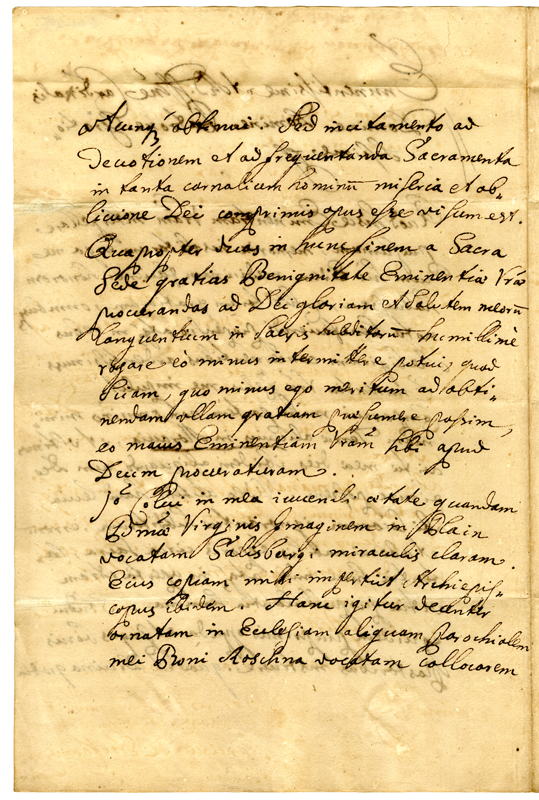 obtinui. Sed incitamento ad
devotionem et ad frequentanda Sacramenta
in tanta carnalium hominū miseria et ob-
livione Dei comprimis opus esse visum est.
Quapropter duas in hunc finem a Sacra
Sede gratias Benignitate Eminentiæ Vrā
procurandas ad Dei gloriam et Salutem meorū
languentium in Sacris subditorū humillimè
rogare eò minus intermittere potui, quod
sciam, quo minus ego meritum ad obti-
nendam ullam gratiam præsumere possim,
eo maius Eminentiam Vram̄ sibi apud
Deum procuraturam.
Jo Colui in mea iuvenili ætate quandam
Bdmæ Virginis Imaginem in Plain
vocatam Salisburgi miraculis claram.
Eius copiam mihi impertiit Archiepis-
copus ibidem. Hanc igitur decenter
ornatam in Ecclesiam aliquam parochialem
mei Boni Roschna vocatam collocarem